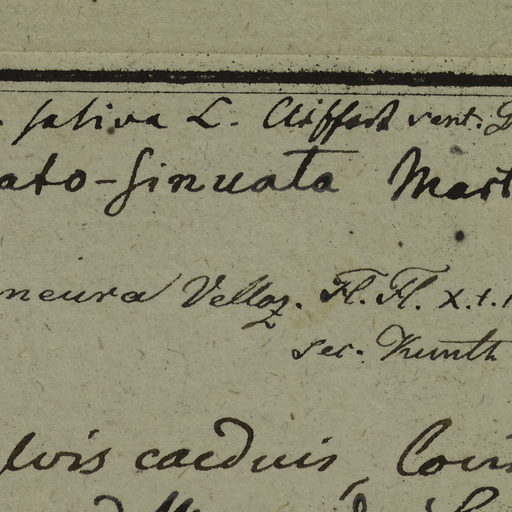 sativa L. Cliffort vent.
ato-sinuata Mart
neura Velloz. Fl. Fl. X. t. 1
sec. Kunth
lvis caeduis,